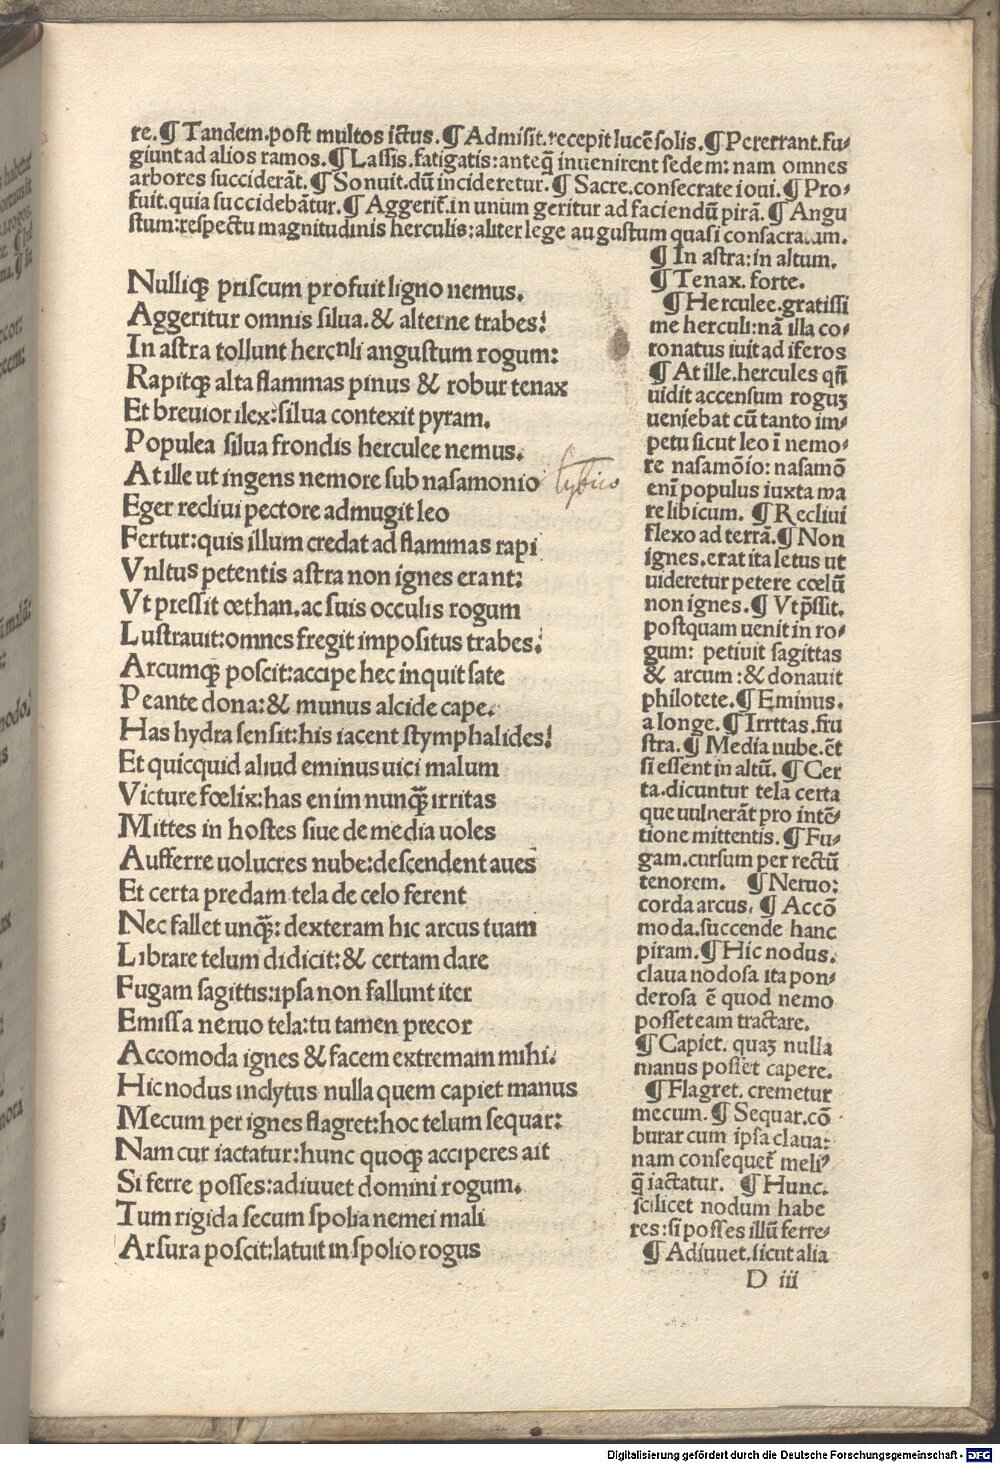 re.¶ Tandem.post multos ictus.¶ Admisit.recepit lucē solis.¶ Pererrant.fu-
giunt ad alios ramos.¶ Lassis.fatigatis:anteq̃ inuenirent sedem: nam omnes
arbores succiderāt.¶ Sonuit.dū incideretur.¶ Sacre.consecrate ioui.¶ Pro-
fuit.quia succidebātur.¶ Aggerit̃.in unum geritur ad faciendū pirā.¶ Angu
stum:respectu magnitudinis herculis:aliter lege augustum quasi consacratam.
Nulliqꝫ priscum profuit ligno nemus.
Aggeritur omnis silua.& alterne trabes:
In astra tollunt herculi angustum rogum:
Rapitqꝫ alta flammas pinus & robur tenax
Et breuior ilex:silua contexit pyram.
Populea silua frondis herculee nemus.
At ille ut ingens nemore sub nasamonio lybico
Eger recliui pectore admugit leo
Fertur:quis illum credat ad flammas rapi
Vultus petentis astra non ignes erant:
Vt pressit œthan.ac suis occulis rogum
Lustrauit:omnes fregit impositus trabes:
Arcumqꝫ poscit:accipe hec inquit sate
Peante dona:& munus alcide cape.
Has hydra sensit:his iacent stymphalides:
Et quicquid aliud eminus uici malum
Victure fœlix:has enim nunq̃ irritas
Mittes in hostes siue de media uoles
Aufferre uolucres nube:descendent aues
Et certa predam tela de celo ferent
Nec fallet unq̃: dexteram hic arcus tuam
Librare telum didicit:& certam dare
Fugam sagittis:ipsa non fallunt iter
Emissa neruo tela:tu tamen precor
Accomoda ignes & facem extremam mihi:
Hic nodus inclytus nulla quem capiet manus
Mecum per ignes flagret:hoc telum sequar:
Nam cur iactatur:hunc quoqꝫ acciperes ait
Si ferre posses:adiuuet domini rogum.
Tum rigida secum spolia nemei mali
Arsura poscit:latuit in spolio rogus
¶ In astra:in altum.
¶ Tenax. forte.
¶ Herculee.gratissi
me herculi:nā illa co-
ronatus iuit ad iferos
¶ At ille.hercules qñ
uidit accensum roguꝫ
ueniebat cū tanto im-
petu sicut leo ī nemo-
re nasamōio: nasamō
enī populus iuxta ma
re libicum. ¶ Recliui
flexo ad terrā.¶ Non
ignes.erat ita letus ut
uideretur petere cœlū
non ignes.¶ Vt p̄ssit.
postquam uenit in ro-
gum: petiuit sagittas
& arcum:& donauit
philotete.¶ Eminus.
a longe.¶ Irrttas.fru
stra.¶ Media nube.ēt
si essent in altū. ¶ Cer
ta.dicuntur tela certa
que uulnerāt pro intē-
tione mittentis.¶ Fu-
gam.cursum per rectū
tenorem. ¶ Neruo:
corda arcus. ¶ Accō
moda.succende hanc
piram.¶ Hic nodus.
claua nodosa ita pon-
derosa ē quod nemo
posset eam tractare.
¶ Capiet. quaꝫ nulla
manus posset capere.
¶ Flagret. cremetur
mecum.¶ Sequar.cō
burar cum ipsa claua:
nam consequet̃ meli⁹
q̃ iactatur. ¶ Hunc.
scilicet nodum habe
res:si posses illū ferre-
¶ Adiuuet.sicut alia
D iii
Digitalisierung gefördert durch die Deutsche Forschungsgemeinschaft - DFG